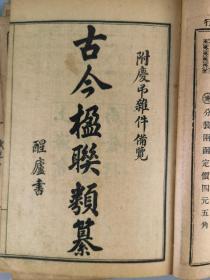 附慶弔雜件備覽
古今楹聯類纂
醒廬書
分裝兩函定價四元五角